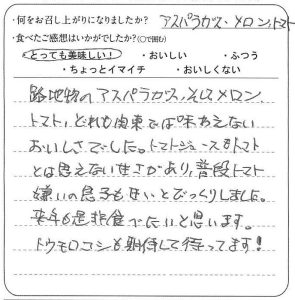 ・何をお召し上がりになりましたか? アスパラガス、メロン、トマト
・食べたご感想はいかがでしたか?(○で囲む)
・とっても美味しい! ・おいしい ・ふつう
・ちょっとイマイチ ・おいしくない
路地物のアスパラガス、そしてメロン、
トマト、どれも関東では味わえない
おいしさでした。トマトジュースもトマト
とは思えない甘さがあり、普段トマト
嫌いの息子も甘いとびっくりしました。
来年も是非食べたいと思います。
トウモロコシも期待して待ってます!